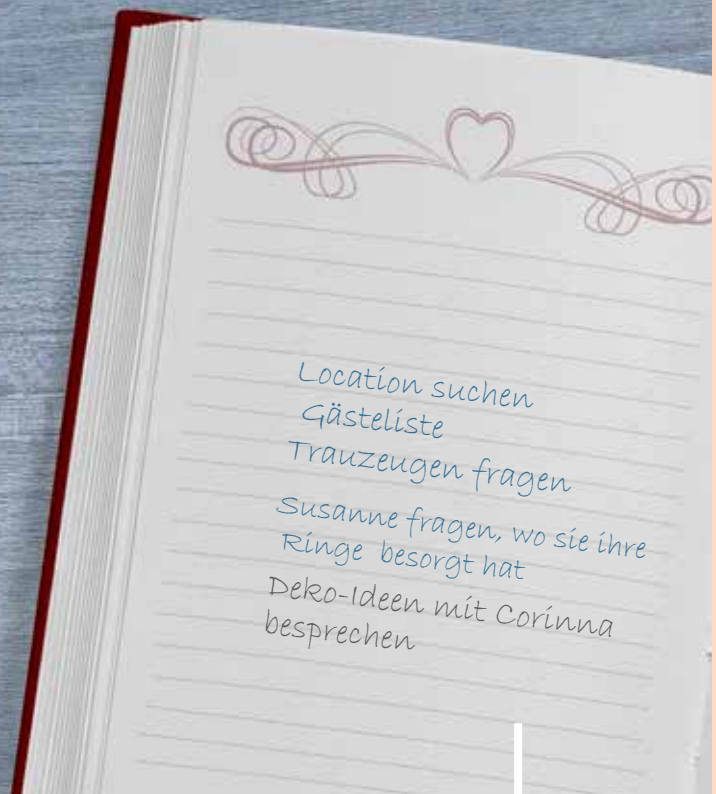 Location suchen
Gästeliste
Trauzeugen fragen
Susanne fragen, wo sie ihre
Ringe besorgt hat
Deko-Ideen mit Corinna
besprechen